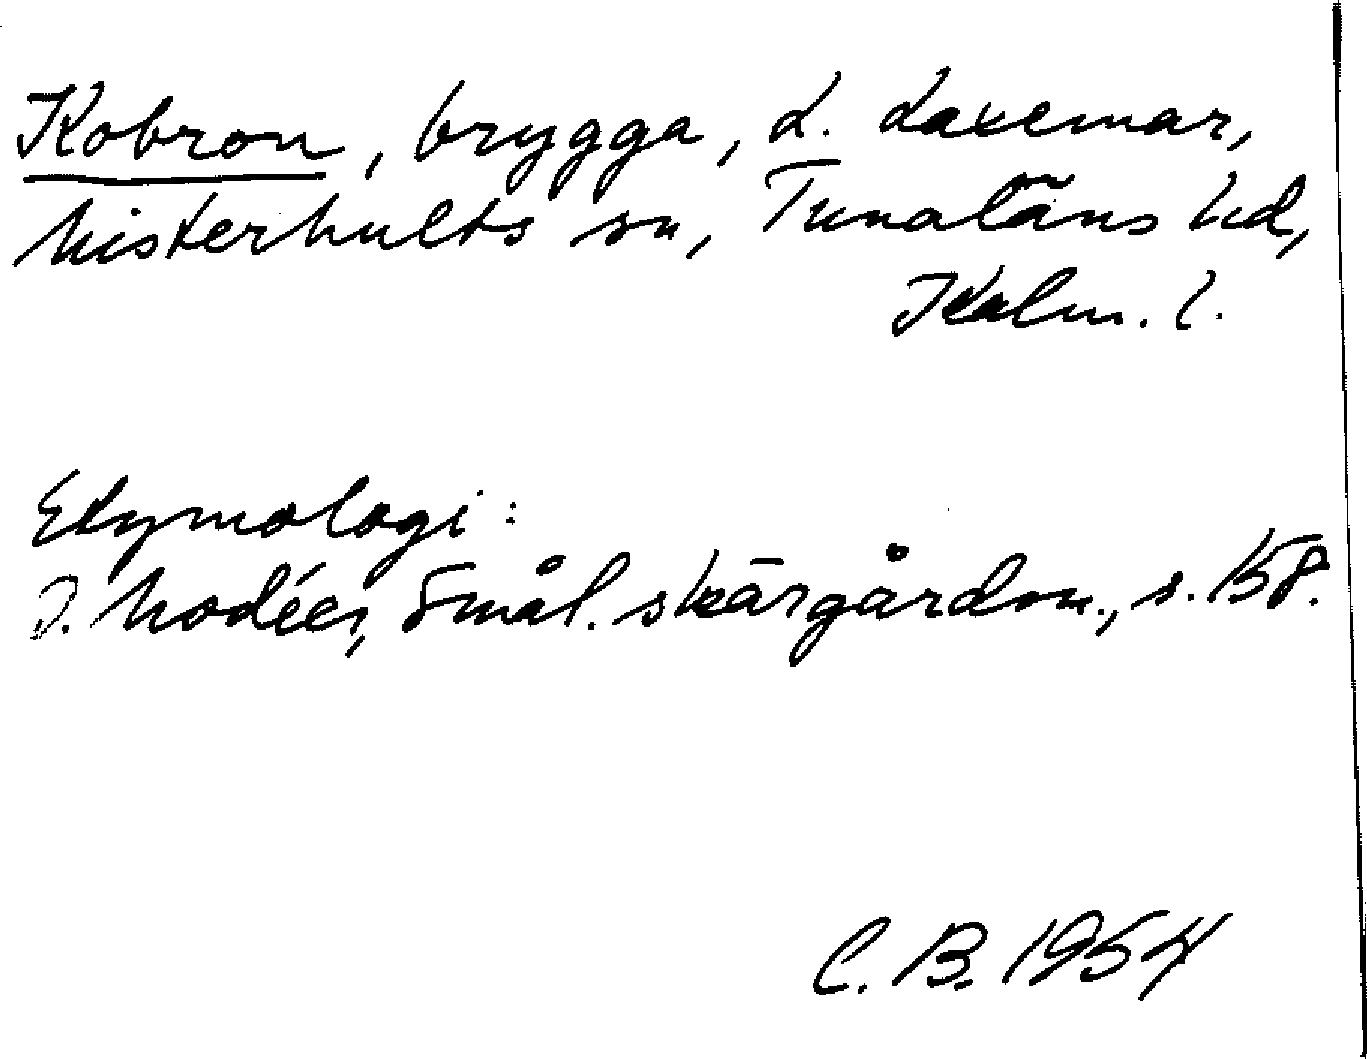 Kobron, brygga, L. Laxemar,
Misterhults sn, Tunaläns hd,
Kalm. l.
Etymologi:
I. Modéer, Smål. skärgårdsn., s. 158.
C. B. 1954